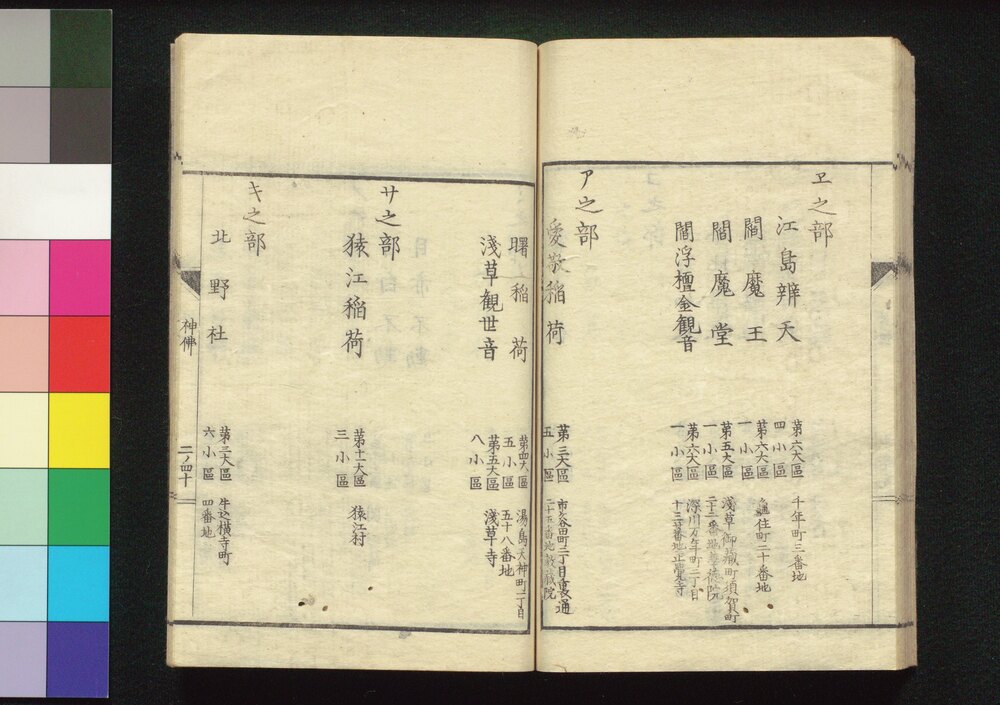 ヱ之部
江島辨天
第六大區
四小區
千年町三番地
閻魔王
第六大區
一小區
龜住町二十番地
閻魔堂
第五大區
一小區
淺草御藏町須賀町
二十二番地華德院
閻浮檀金観音
第六大區
一小區
深川万年町二丁目
十三番地正覺寺
ア之部
愛敬稲荷
第三大區
五小區
市谷田町二丁目裏通
二十五番地教蔵院
曙稲荷
第四大區
五小區
湯島天神町二丁目
五十八番地
淺草観世音
第五大區
八小區
淺草寺
サ之部
猿江稲荷
第十一大區
三小區
猿江村
キ之部
北野社
第三大區
六小區
牛込横寺町
四番地
神佛
二ノ四十